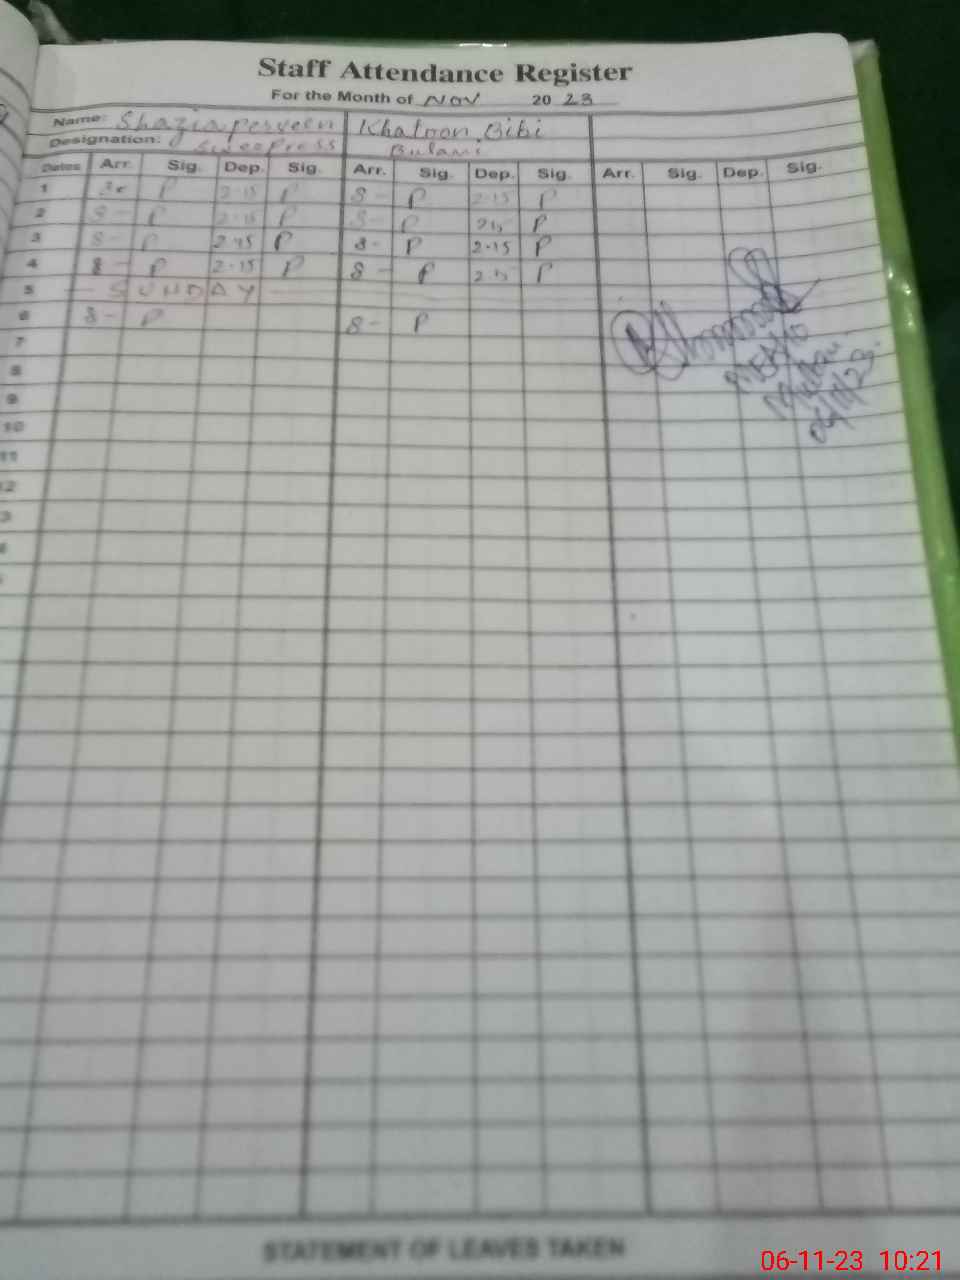 Staff Attendance Register
For the Month of Nov 2023
Name: Shazia Perveen Khatoon Bibi
Designation: Sweepress Bulavi
Dates Arr. Sig. Dep. Sig. Arr. Sig. Dep. Sig. Arr. Sig. Dep. Sig.
1 P 2-15 P 8- P 2-15 P
2 8- P 2-15 P 8- P 215 P
3 8- P 2-45 P 8- P 2-15 P
4 8- P 2-15 P 8- P 2-15 P
5 SUNDAY
6 8- P 8- P
7
8
9
10
11
12
3
STATEMENT OF LEAVES TAKEN
06-11-23 10:21